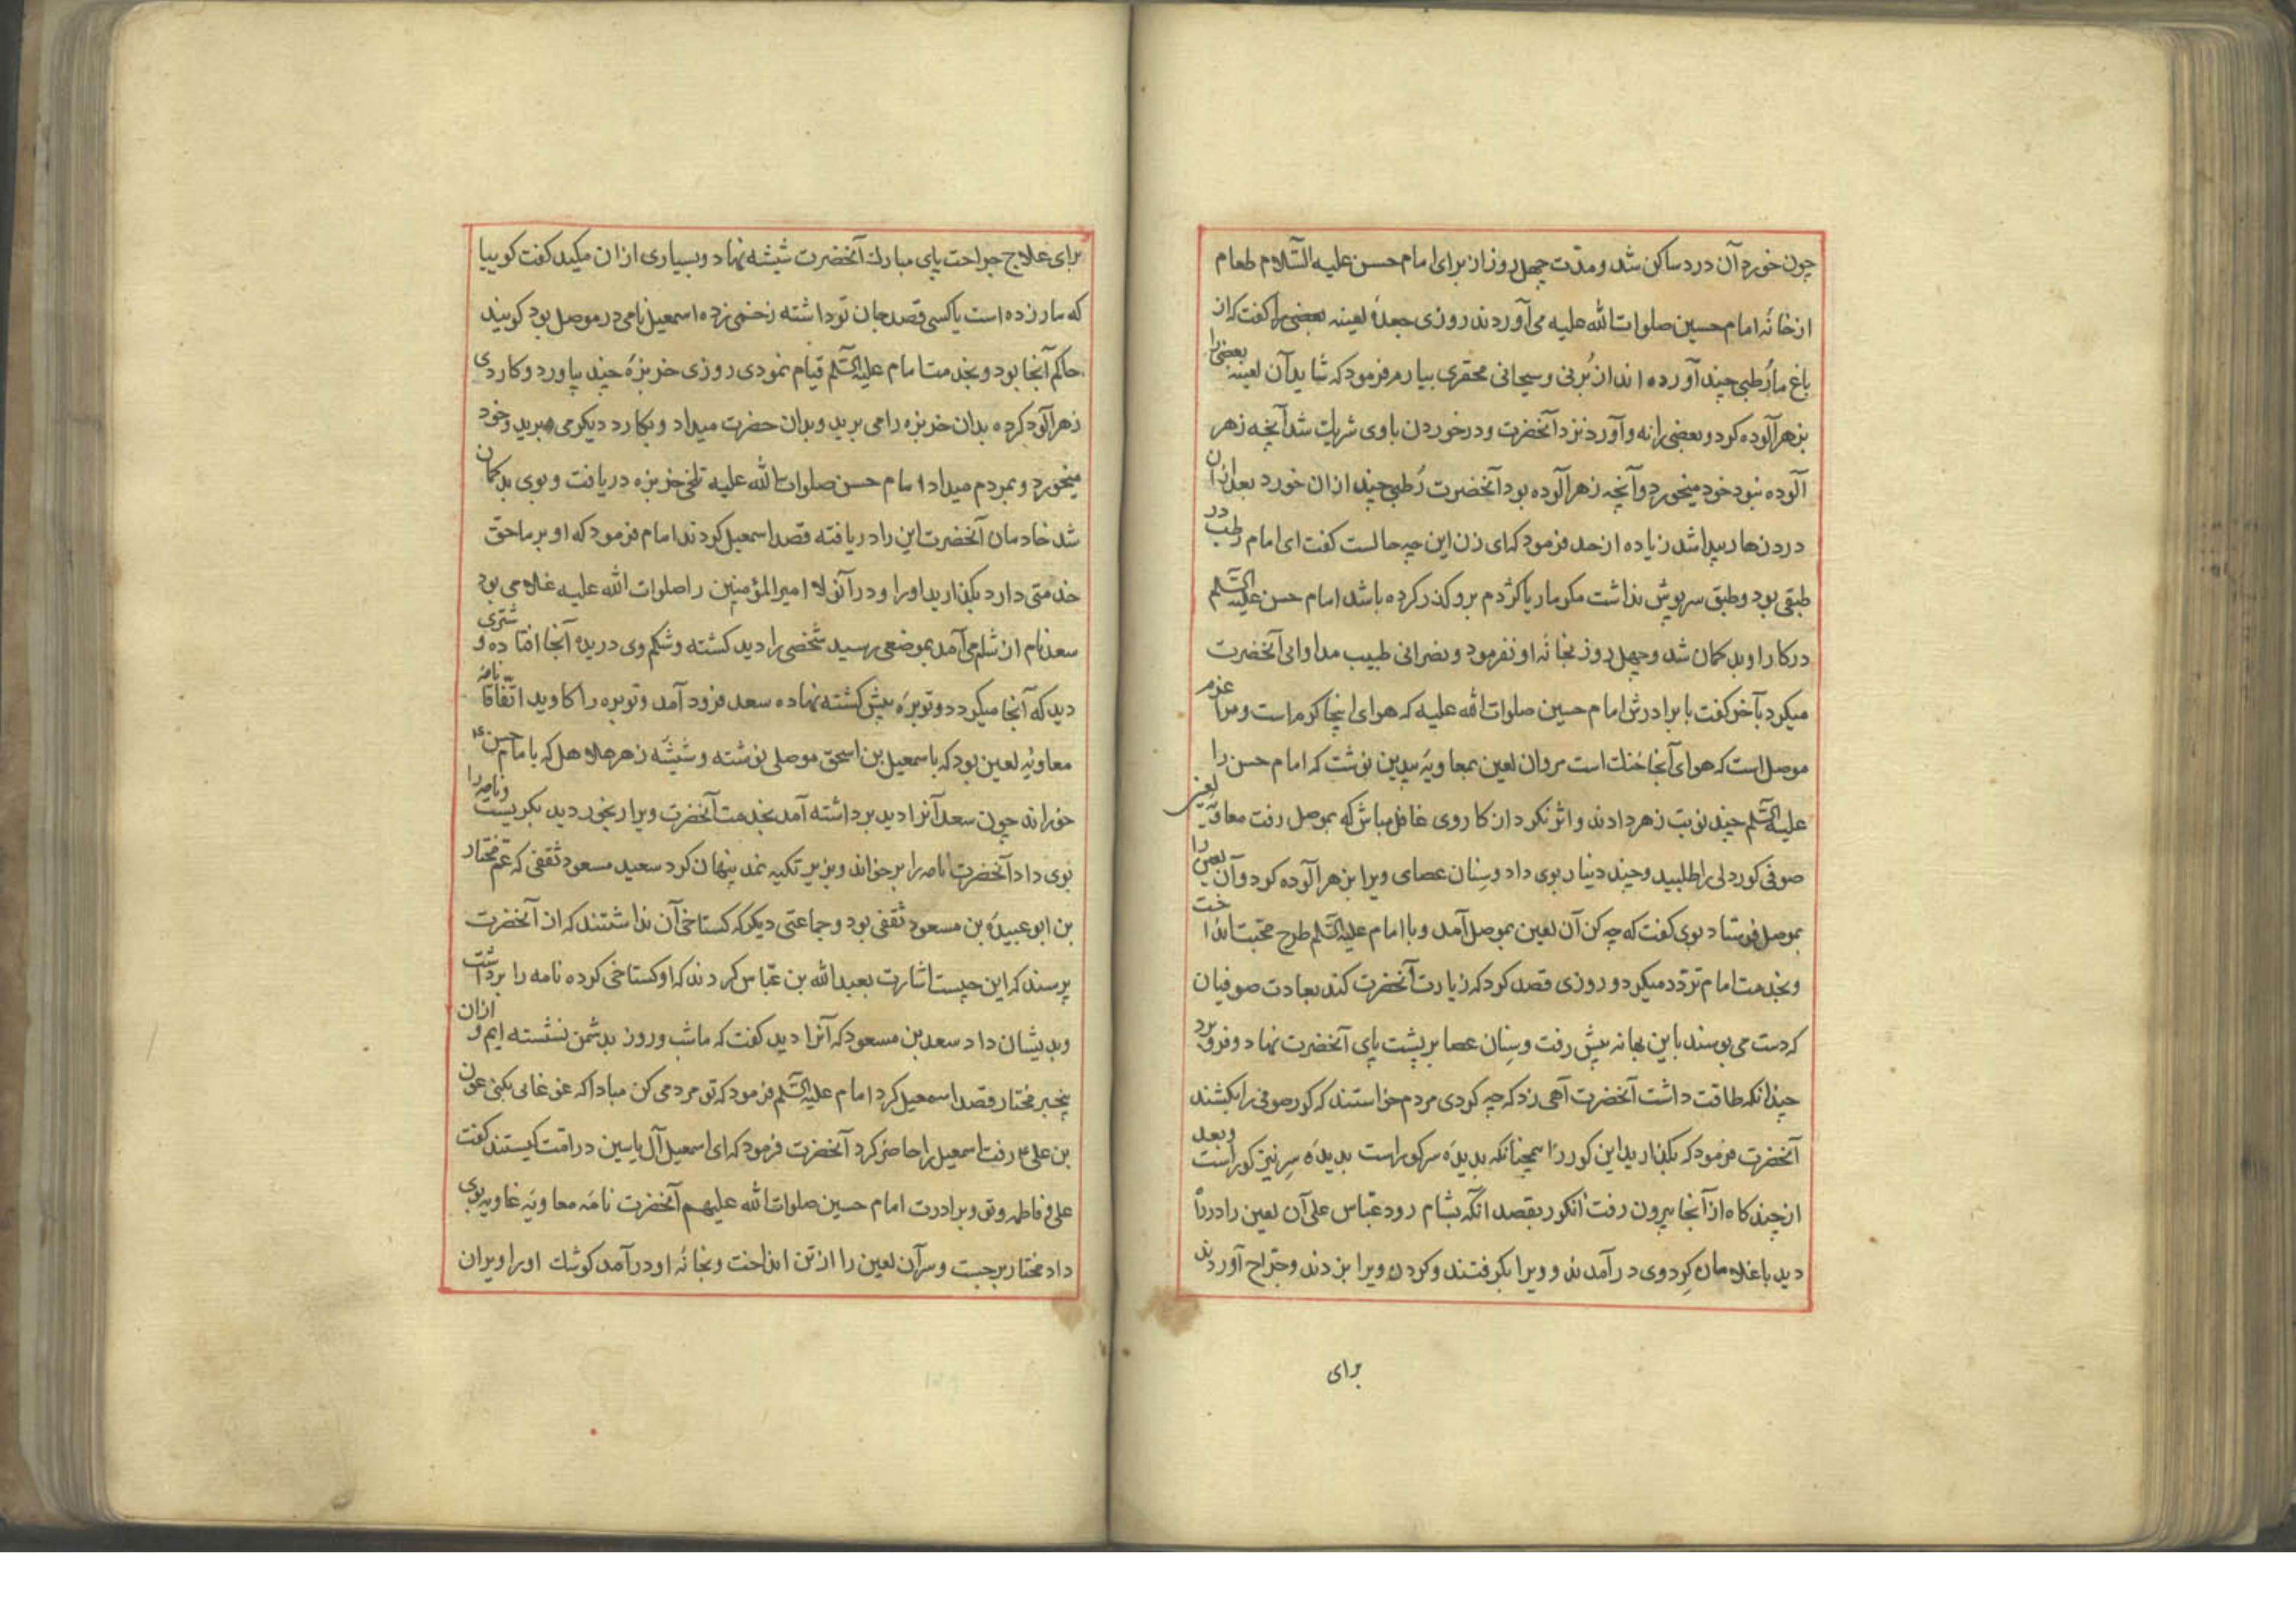 چون خورد آن درد ساکن شد و مدّت چهل روز از برای امام حسن علیه السّلام طعام
از خانهٔ امام حسین صلوات الله علیه می آوردند روزی جعدهٔ لعینه گفت که از
باغ ما رُطبی چند آورده اند از بُرنی و سیحانی محقری بیارم فرمود که شاید آن لعینه بعضی را
بزهر آلوده کرد و بعضی را نه و آورد نزد آنحضرت و در خوردن با وی شریک شد آنچه زهر
آلوده نبود خود میخورد و آنچه زهر آلوده بود آنحضرت رُطبی چند ازان خورد بعد ازان
درد زهار پیدا شد زیاده از حد فرمود که ای زن این چه حالست گفت ای امام رطب در
طبقی بود و طبق سرپوش نداشت مکر مار یا کژدم برو کذر کرده باشد امام حسن علیه السّلم
در کار او بد کمان شد و چهل روز بخانهٔ او نفرمود و نصرانی طبیب مداوای آنحضرت
میکرد بآخر کفت با برادرش امام حسین صلوات الله علیه که هوای اینجا کرم است و مرا عزم
موصل است که هوای آنجا خنک است مروان لعین بمعاویهٔ پلید نوشت که امام حسن را
علیه السّلم چند نوبت زهر دادند و اثر نکرد از کار وی غافل مباش که بموصل رفت معاویه لعین
صوفی کوردلی را طلبید و چند دینار بوی داد و سِنان عصای ویرا بزهر آلوده کرد و آن لعین را
بموصل فرستاد بوی کفت که چه کن آن لعین بموصل آمد و با امام علیه السّلم طرح محبت انداخت
و بخدمت امام تردّد میکرد و روزی قصد کرد که زیارت آنحضرت کند بعادت صوفیان
که دست می بوسند باین بهانه پیش رفت و سِنان عصا بر پشت پای آنحضرت نهاد و فرو برد
چندانکه طاقت داشت آنحضرت آهی زد که چه کردی مردم خواستند که کور صوفی را بکشند
آنحضرت فرمود که بکذارید این کور را همچنانکه بدیدهٔ سر کور است بدیدهٔ سِر نیز کور است و بعد
از چند کاه از آنجا بیرون رفت آنکور بقصد آنکه بشام رود عبّاس علی آن لعین را در راه
دید با غلامان کِرد وی در آمدند و ویرا بکرفتند و کردن ویرا بزدند و جرّاح آوردند
برای
برای علاج جراحت پای مبارک آنحضرت شیشه نهاد و بسیاری ازان میکید کفت کوییا
که مار زده است یا کسی قصد جان تو داشته زخمی زده اسمعیل نامی در موصل بود کویند
حاکم آنجا بود و بخدمت امام علیه السّلم قیام نمودی روزی خربزهٔ چند بیاورد و کاردی
زهر آلود کرده بدان خربزه را می برید و بدان حضرت میداد و بکارد دیکر می برید و خود
میخورد و بمردم میداد امام حسن صلوات الله علیه تلخی خربزه دریافت و بوی بد کمان
شد خادمان آنحضرت این را دریافته قصد اسمعیل کردند امام فرمود که او بر ما حقّ
خدمتی دارد بکذارید او را و در آنولا امیر المؤمنین را صلوات الله علیه غلامی بود
سعد نام از شام می آمد بموضعی رسید شخصی را دید کشته و شکم وی دریده آنجا افتاده و شتری
دید که آنجا میکردد و توبرهٔ پیش کشته نهاده سعد فرود آمد و توبره را کاوید اتّفاقًا نامهٔ
معاویهٔ لعین بود که باسمعیل بن اسحق موصلی نوشته و شیشهٔ زهر هلاهل که با امام حسن ع
خوراند چون سعد آنرا دید برداشته آمد بخدمت آنحضرت ویرا رنجور دید بکریست و نامه را
بوی داد آنحضرت نامه را برخواند و بزیر تکیه نمد پنهان کرد سعید مسعود ثقفی که عم مختار
بن ابو عبیدهٔ بن مسعود ثقفی بود و جماعتی دیکر که کستاخی آن نداشتند که از آنحضرت
پرسند که این چیست اشارت بعبدالله بن عبّاس کردند که او کستاخی کرده نامه را برداشت
و بدیشان داد سعد بن مسعود که آنرا دید کفت که ما شب و روز بدشمن نشسته ایم و ازان
بیخبر مختار قصد اسمعیل کرد امام علیه السّلم فرمود که تو مردمی کن مبادا که غوغائی بکنی عون
بن علی ع رفت اسمعیل را حاضر کرد آنحضرت فرمود که ای اسمعیل آل یاسین در امّت کیستند کفت
علی و فاطمه و تو و برادرت امام حسین صلوات الله علیهم آنحضرت نامهٔ معاویهٔ غاویه بوی
داد مختار برجست و سر آن لعین را از تن انداخت و بخانهٔ او در آمد کوشک او را ویران